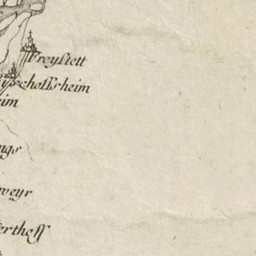 Freystett
Bischoffsheim
eim
ngs
weyr
erthoff